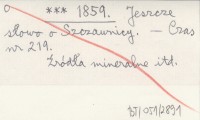 *** 1859. Jeszcze
słowo o Szczawnicy. — Czas
nr 219.
Źródła mineralne itd.